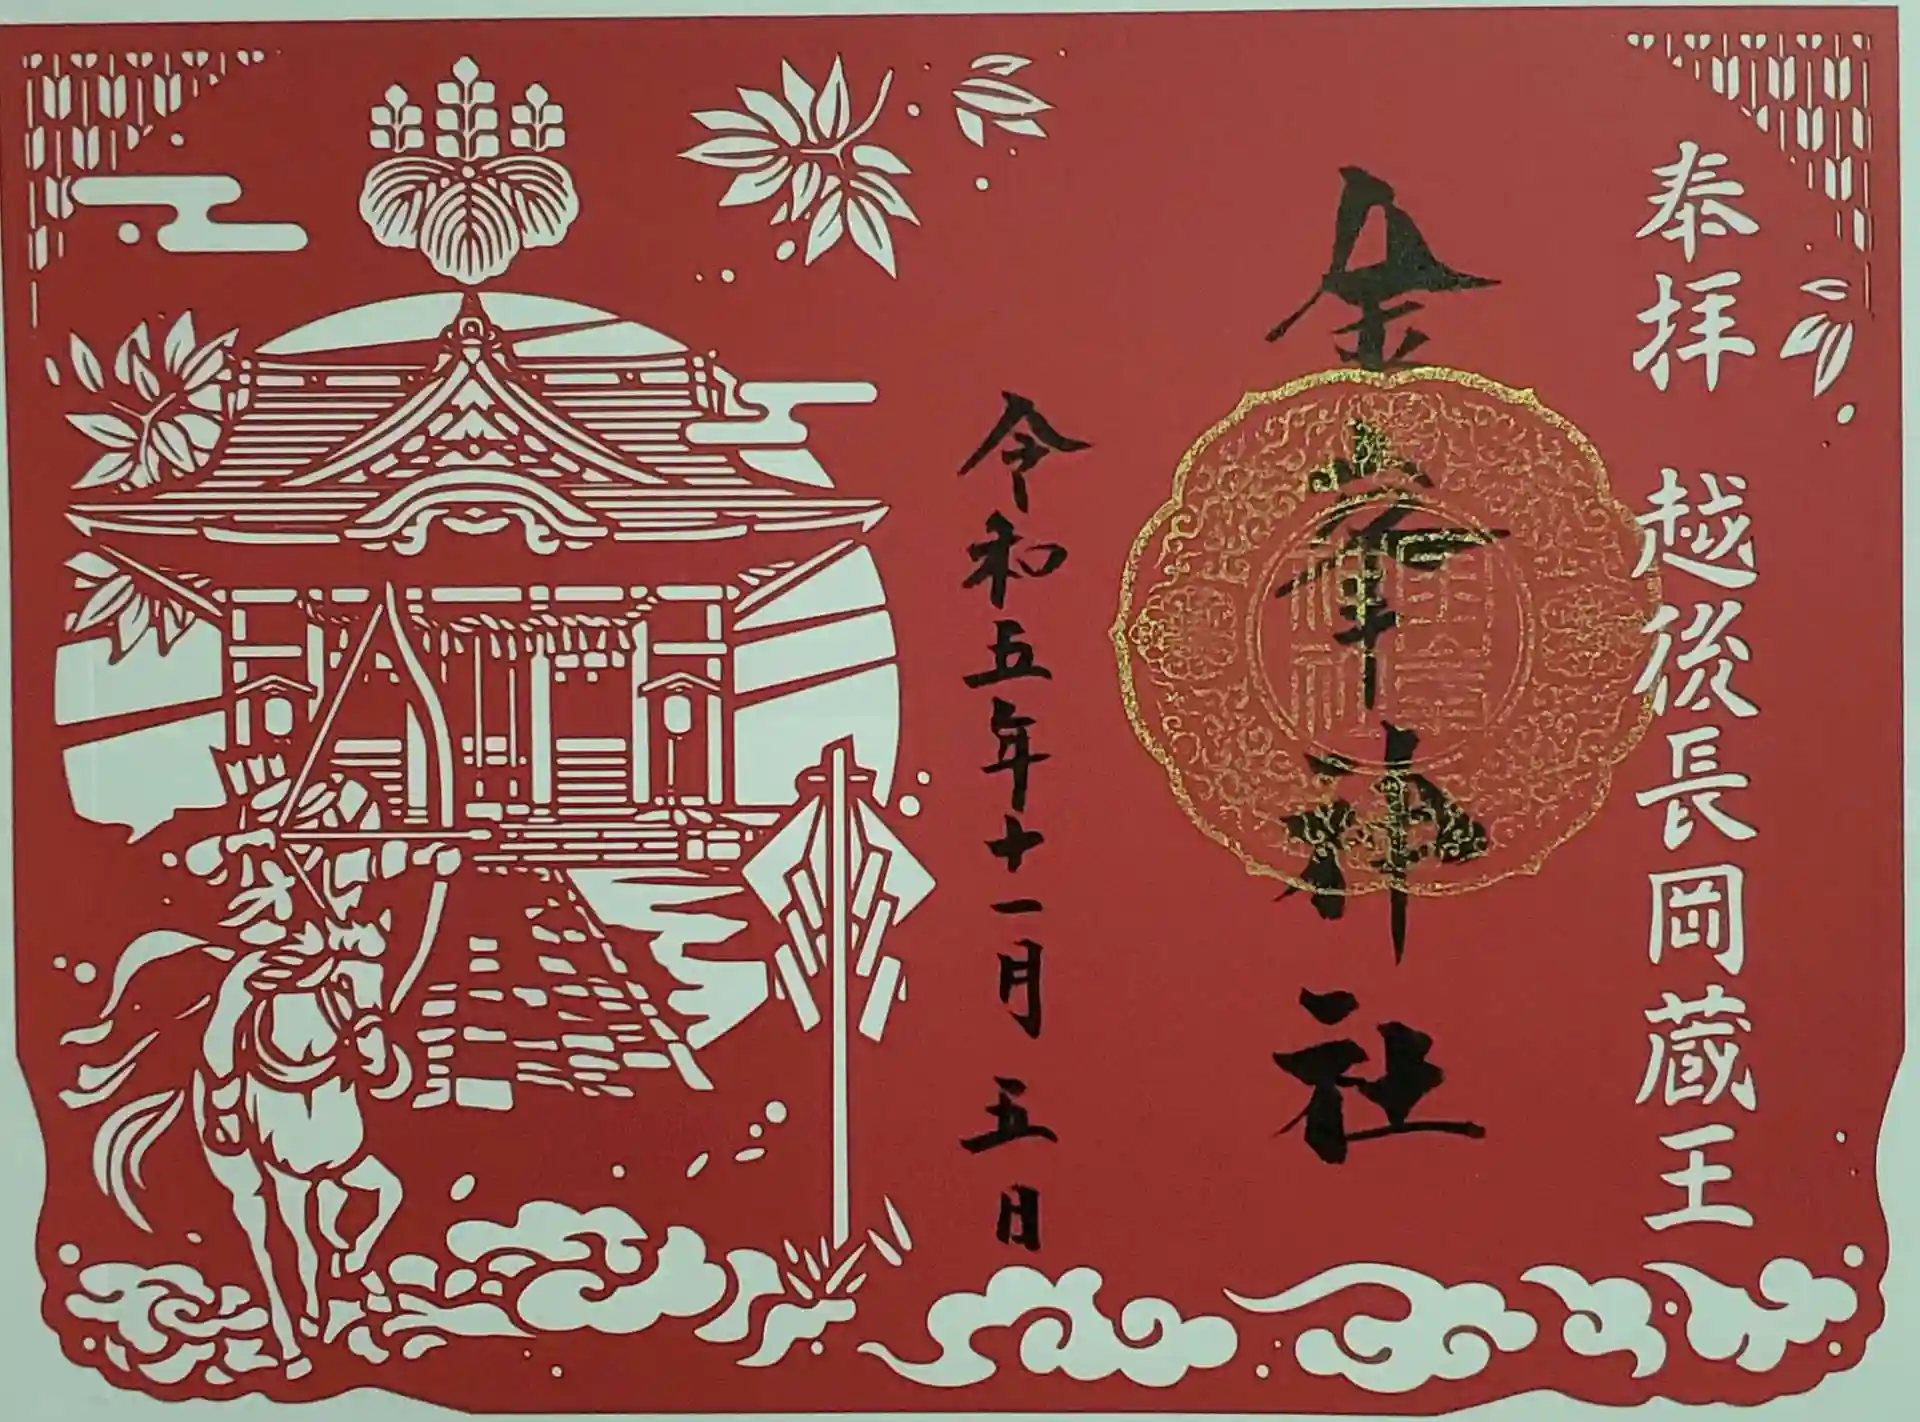 奉拝　越後長岡蔵王
金峯神社
令和五年十一月五日